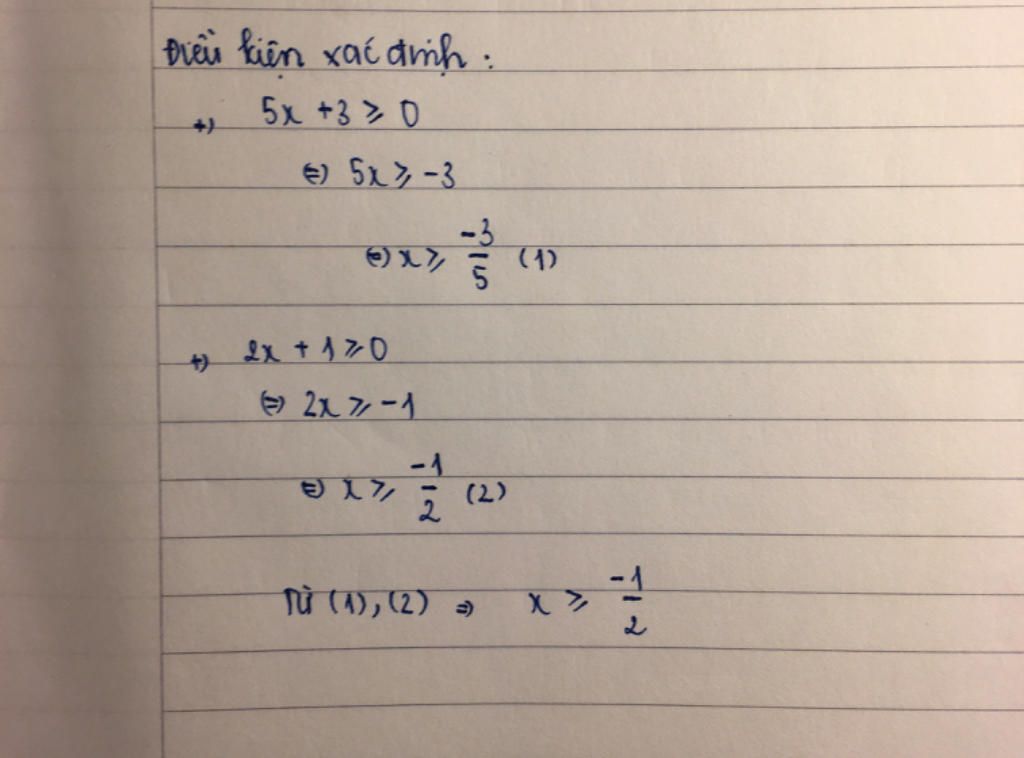 Điều kiện xác định :
+) 5x + 3 ⩾ 0
⇔ 5x ⩾ -3
⇔ x ⩾ -3/5 (1)
+) 2x + 1 ⩾ 0
⇔ 2x ⩾ -1
⇔ x ⩾ -1/2 (2)
Từ (1), (2) ⇒ x ⩾ -1/2